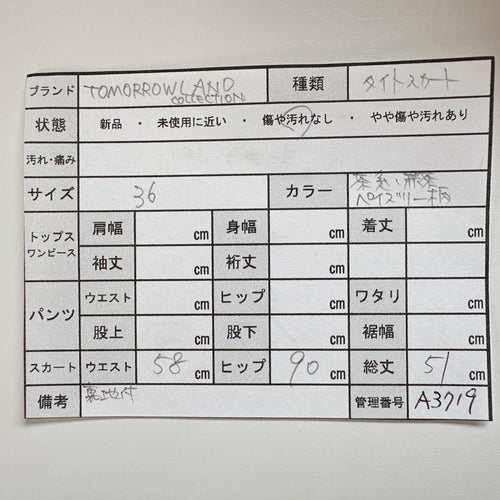 ブランド TOMORROWLAND COLLECTION 種類 タイトスカート
状態 新品 ・ 未使用に近い ・ 傷や汚れなし ・ やや傷や汚れあり
汚れ・痛み
サイズ 36 カラー 茶系、
ペイズリー柄
トップス ワンピース 肩幅 cm 身幅 cm 着丈 cm
袖丈 cm 裄丈 cm
パンツ ウエスト cm ヒップ cm ワタリ cm
股上 cm 股下 cm 裾幅 cm
スカート ウエスト 58 cm ヒップ 90 cm 総丈 51 cm
備考 裏地付 管理番号 A3719